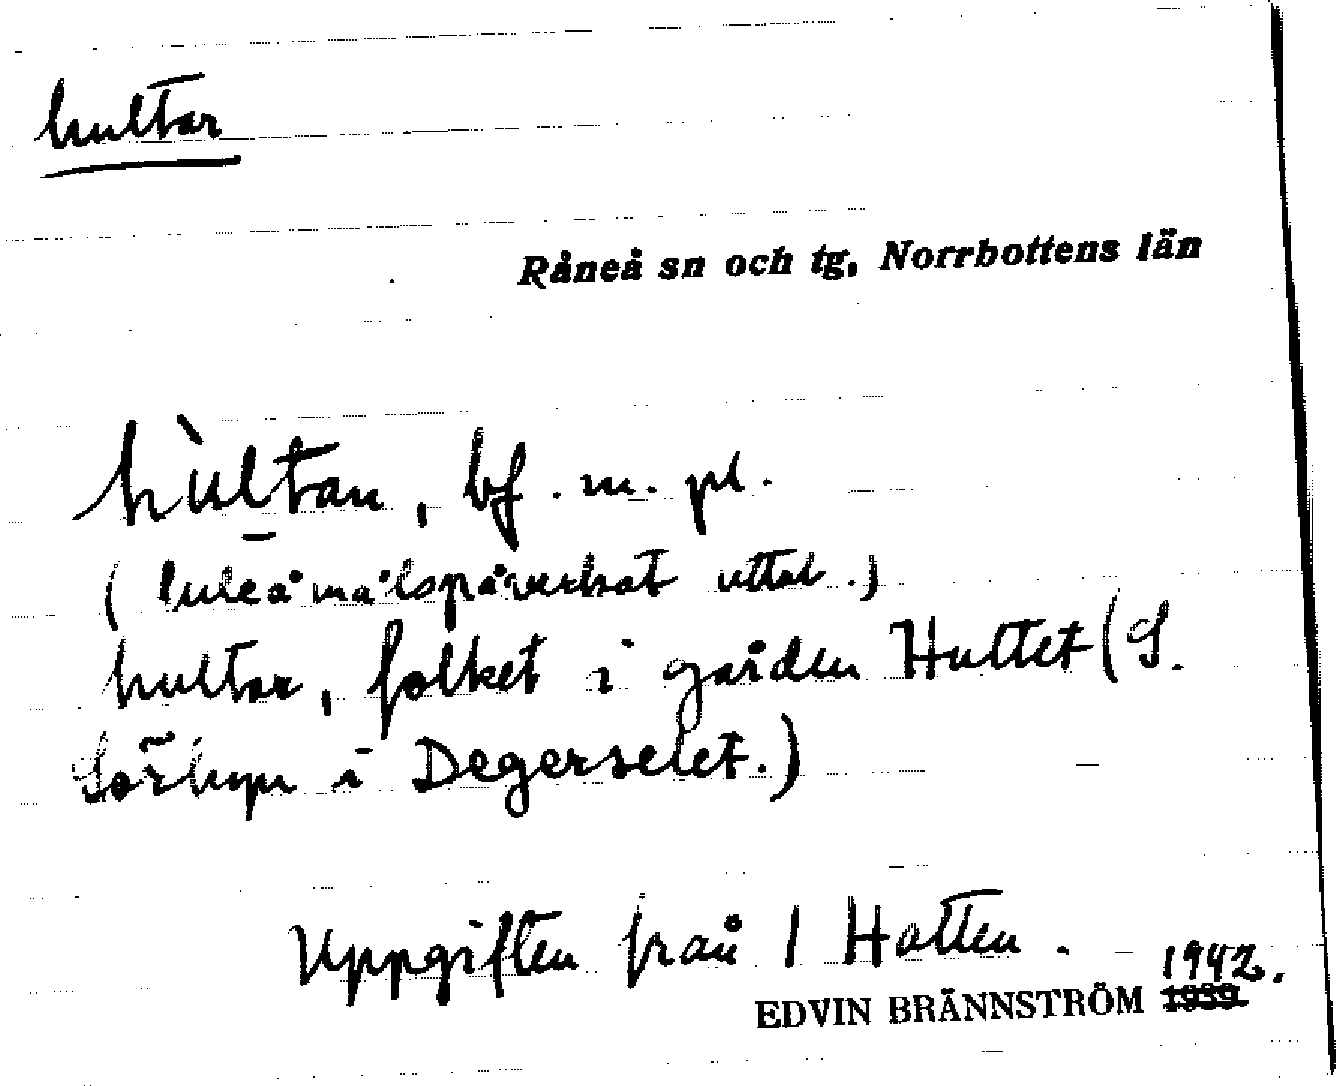 hultar
Råneå sn och tg, Norrbottens län
hùltan, bf. m. pl.
(luleåmålspåverkat uttal.)
hultar, folket i gården Hultet (S.
Sörbyn i Degerselet.)
Uppgiften från 1 Hatten.
1942.
EDVIN BRÄNNSTRÖM 1939